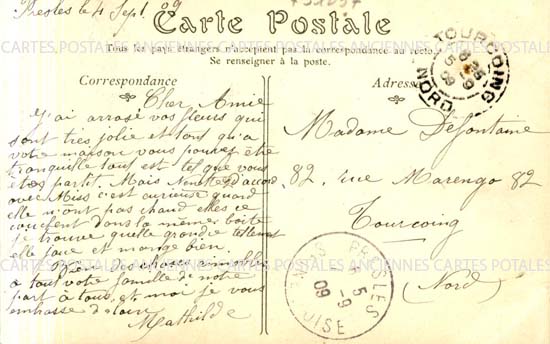 Presles le 4 Sept. 09
Carte Postale
Tous les pays étrangers n'acceptent pas la correspondance au recto
Se renseigner à la poste.
Correspondance
Adresse
Cher Amie
J'ai arrosé vos fleurs qui
sont très jolie et tout qu'a
votre maison vous pouvez être
tranquille tout est tel que vous
êtes partit. Mais Ninette d'accord
avec Miss c'est curieuse quand
elle n'ont pas chaud elles ce
couchent dans la même boite
je trouve quelle grandie tellement
elle joue et mange bien.
Bien des choses aimables
à tout votre famille de notre
part à tous, et moi je vous
embrasse
Mathilde
Madame Defontaine
82, rue Marengo 82
Tourcoing
(Nord)
TOURCOING
5-9
09
NORD
PRESLES
5-9
09
OISE
CARTES POSTALES ANCIENNES CARTES POSTALES ANCIENNES CARTES POSTALES